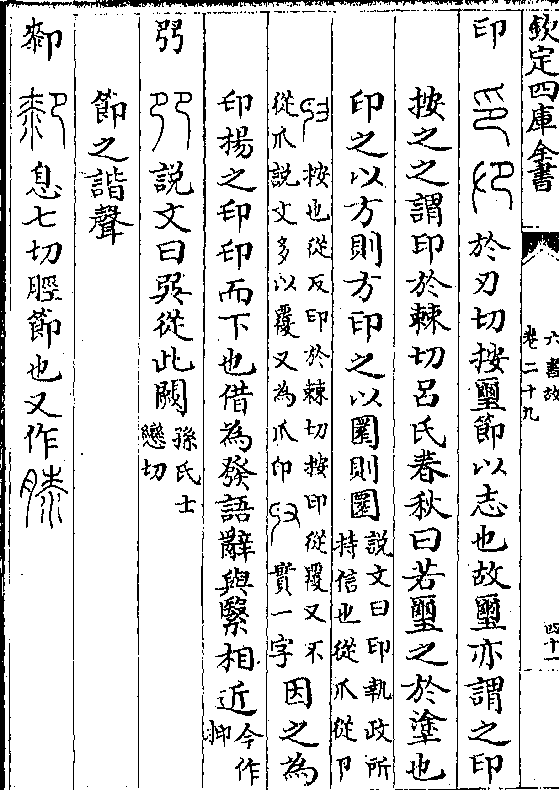 欽定四庫全書
六書故
卷二十九
四十一
印 於刃切按璽節以志也故璽亦謂之印
按之之謂印於棘切呂氏春秋曰若璽之於塗也
印之以方則方印之以圜則圜說文曰印執政所
持信也從爪從卪
按也從反印於棘切按印從覆又不
從爪說文多以覆又為爪印 實一字因之為
印揚之印印而下也借為發語辭與繄相近今作
抑
𢎥 說文曰巽從此闕孫氏士
戀切
節之諧聲
厀 息七切脛節也又作